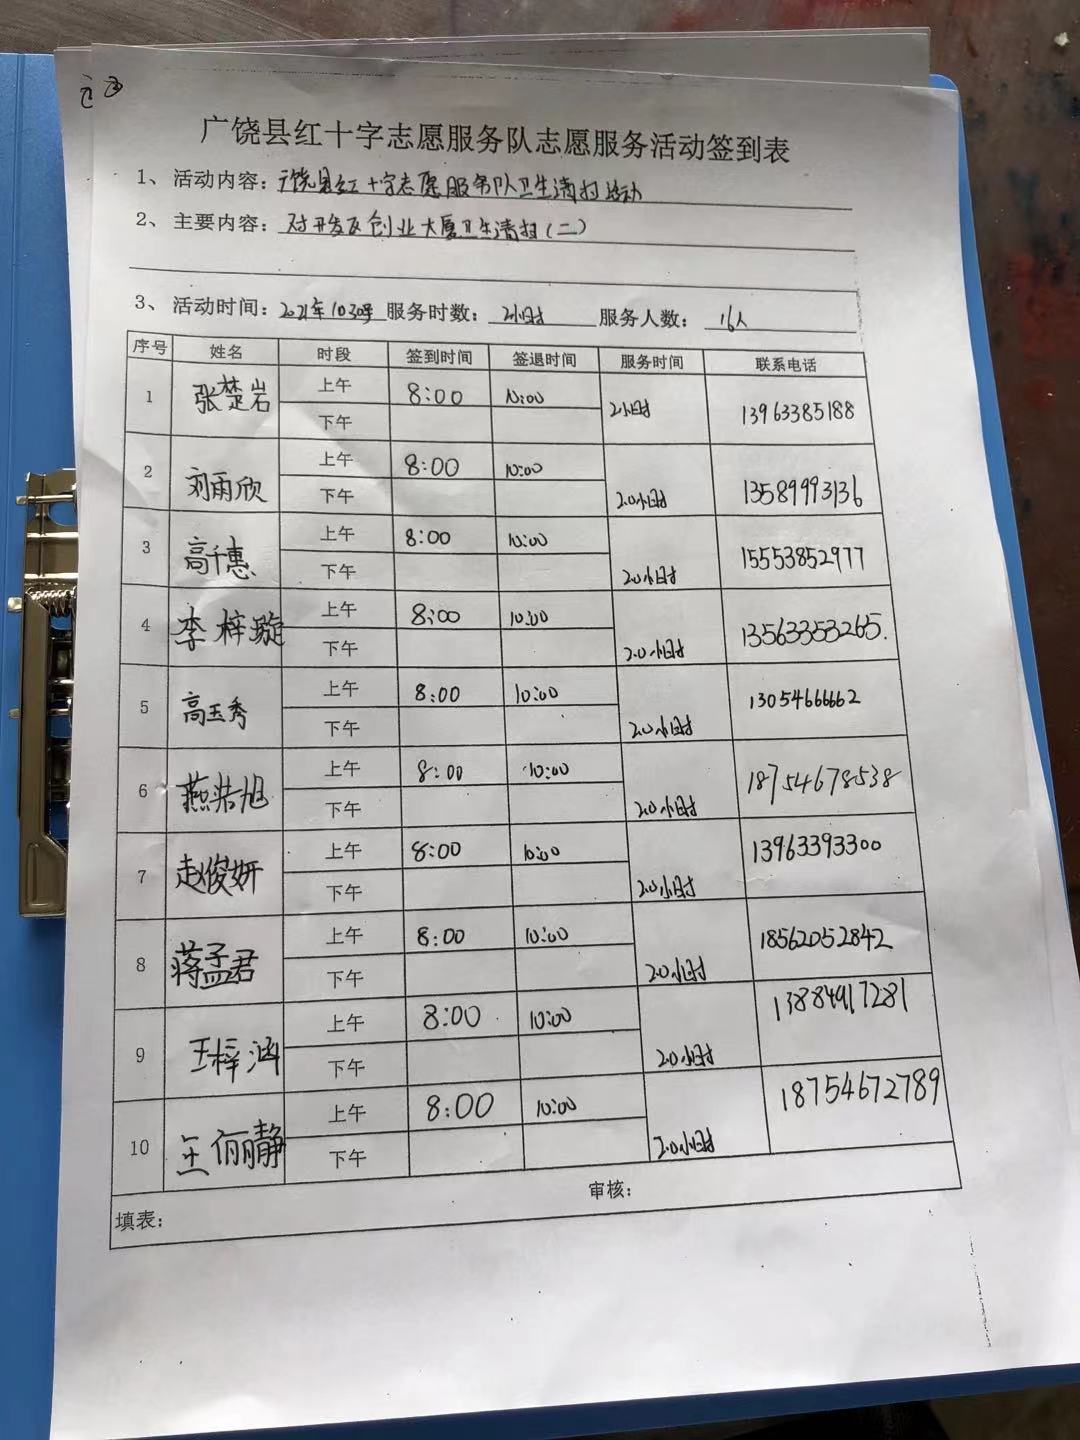 广饶县红十字志愿服务队志愿服务活动签到表
1、活动内容：广饶县红十字志愿服务队卫生清扫活动
2、主要内容：对开发区创业大厦卫生清扫（二）
3、活动时间：2021年10.30号 服务时数：2小时 服务人数：16人
序号 姓名 时段 签到时间 签退时间 服务时间 联系电话
1 张楚岩 上午 8:00 10:00 2小时 13963385188
下午
2 刘雨欣 上午 8:00 10:00 2.0小时 13589993136
下午
3 高千惠 上午 8:00 10:00 2.0小时 15553852977
下午
4 李梓璇 上午 8:00 10:00 2.0小时 13563353265.
下午
5 高玉秀 上午 8:00 10:00 2.0小时 13054666662
下午
6 燕浩旭 上午 8:00 10:00 2.0小时 18754678538
下午
7 赵俊妍 上午 8:00 10:00 2.0小时 13963393300
下午
8 蒋孟君 上午 8:00 10:00 2.0小时 18562052842
下午
9 王梓涵 上午 8:00 10:00 2.0小时 13884917281
下午
10 王俪静 上午 8:00 10:00 2.0小时 18754672789
下午
填表： 审核：